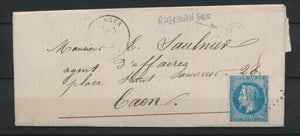 RABODANGES
NGES
Monsieur C. Saulnier
agent d'affaires
place Saint Sauveur 28
Caen